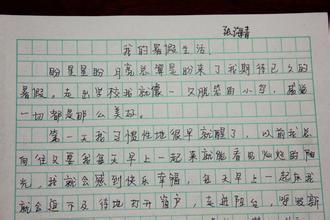 张海青
我的暑假生活
盼星星盼月亮总算是盼来了我期待已久的
暑假。走出学校我就像一只脱笼的小鸟,感觉
一切都是那么美好。
第一天我习惯性地很早就醒了,以前我总
向往又要我每天早上一起来就能看见灿烂的阳
光,我就会感到快乐幸福,每天早上一起床我
就会迫不及待地打开窗户,走进阳台,呼吸新